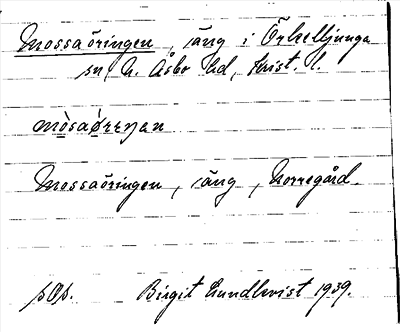 Mossaöringen, äng i Örkelljunga
sn N. Åsbo hd, Krist. l.
Mossaöringen, äng, Norregård.
Birgit Lundkvist 1939.